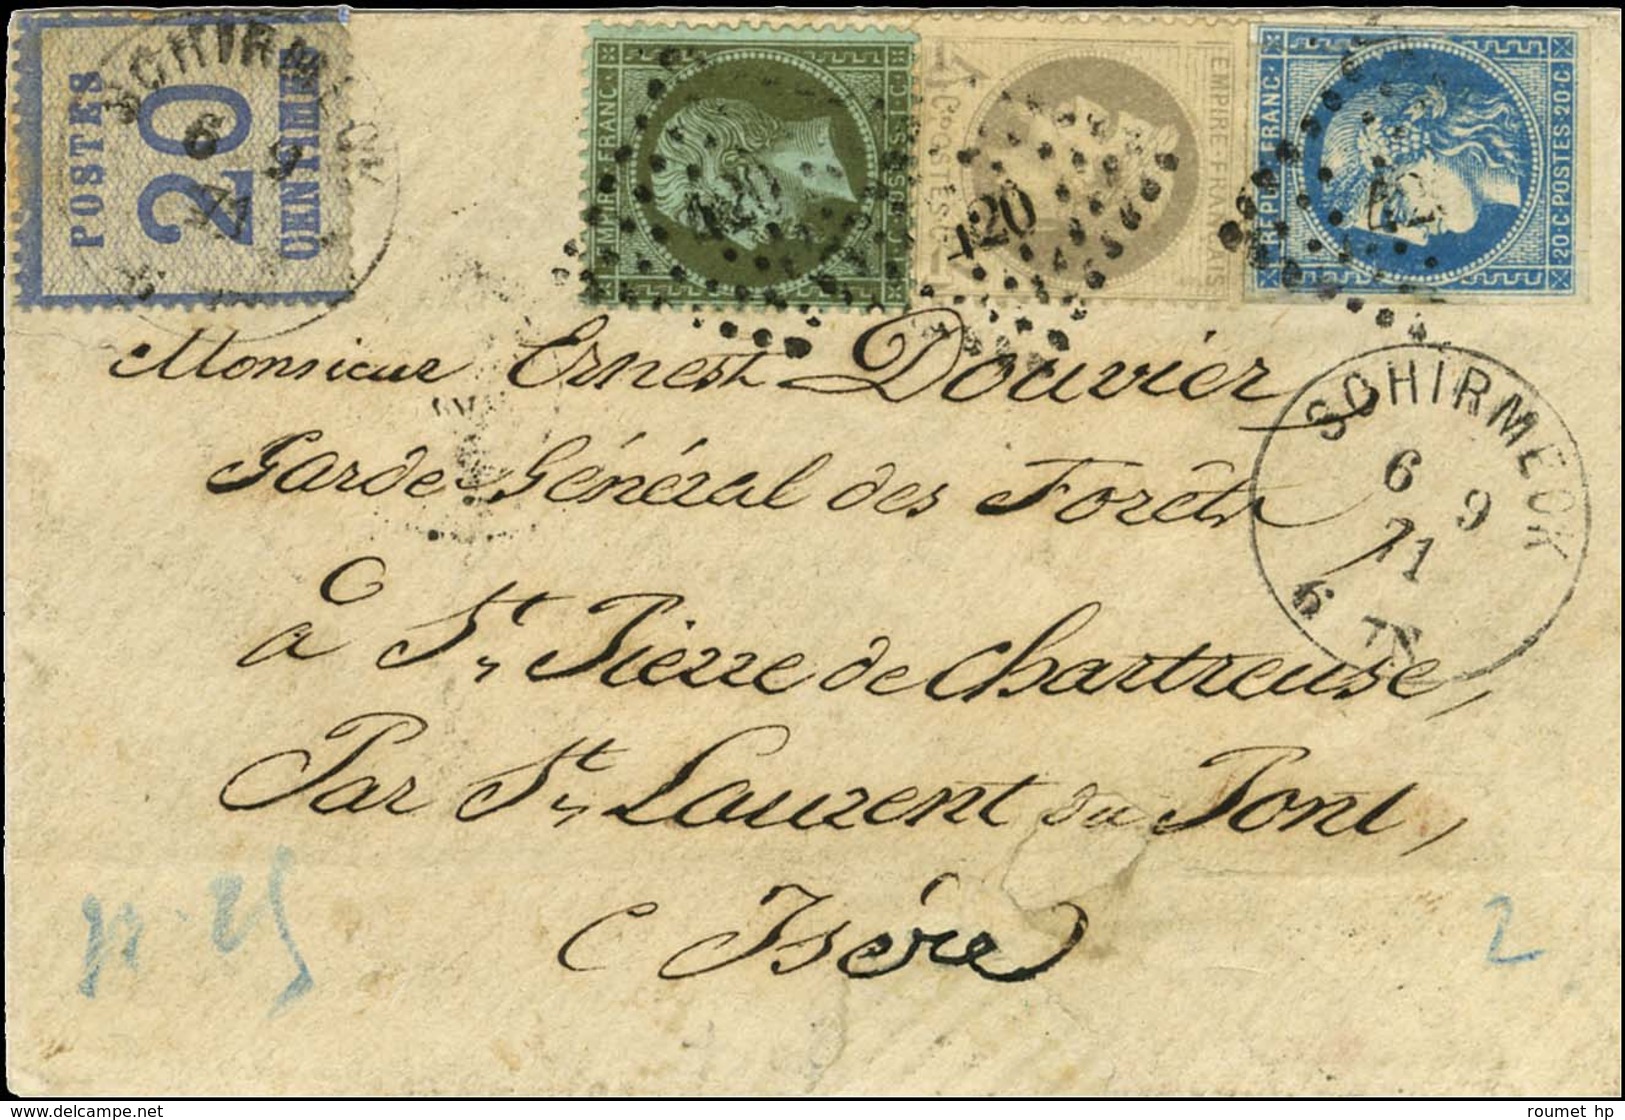 POSTES 20 CENTIMES
SCHIRMECK
6 9
71
EMPIRE FRANC.
1 C. POSTES. 1 C.
420
EMPIRE FRANÇAIS
4 CES POSTES 4 CES
420
REPUB FRANC.
20 C POSTES 20 C
420
Monsieur Ernest Douvier
Garde Général des Forêts
à St Pierre de Chartreuse,
Par St Laurent du Pont,
Isère
SCHIRMECK
6 9
71
6 7 N
2
roumet hp